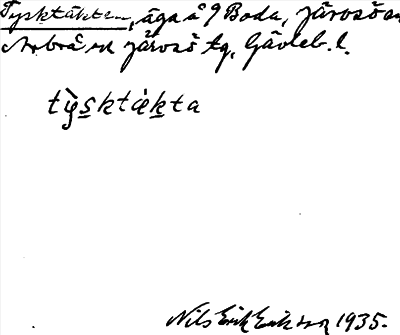 Tysktäkten, äga å 9 Boda, Järvsö sn
Arbrå en Järvsö tg, Gävleb. l.
tỳsktæ̀kta
Nils Erik Eriksson 1935.